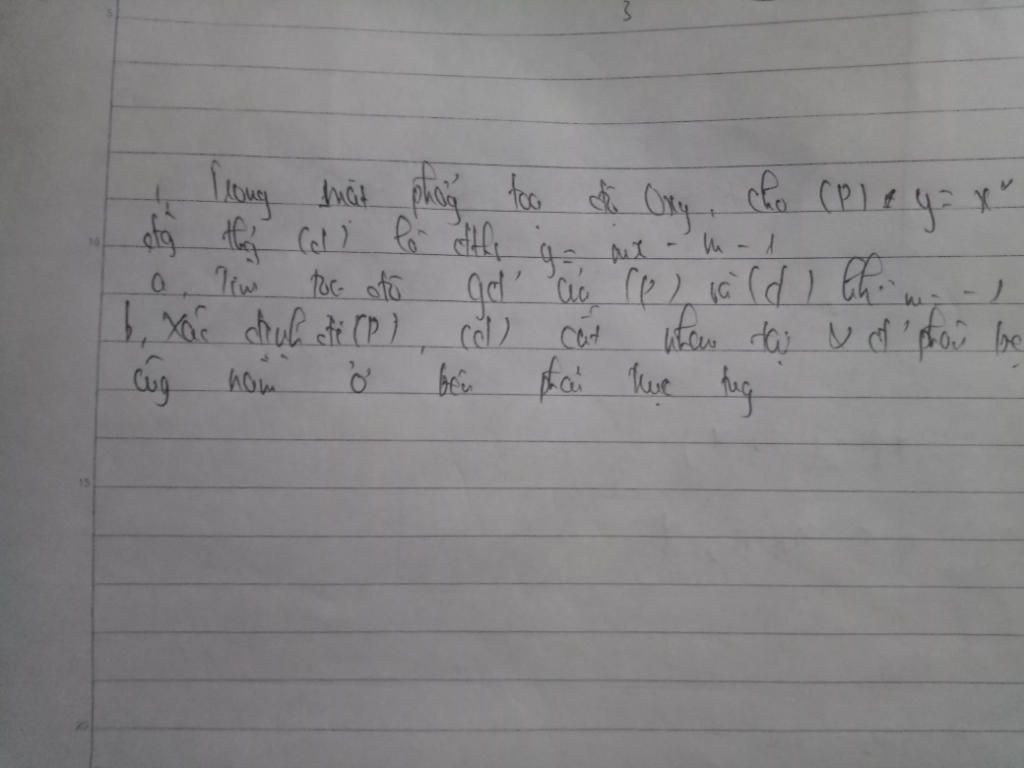 3
5
1, Trong mặt phẳng toạ độ Oxy, cho (P) : y = x²
10 đg thg (d) là đths y = mx - m - 1
a, Tìm toạ độ gđ' của (P) và (d) khi m = -1
b, Xác định để (P), (d) cắt nhau tại 2 đ' phân biệ
cùng nằm ở bên phải trục tug
15
20